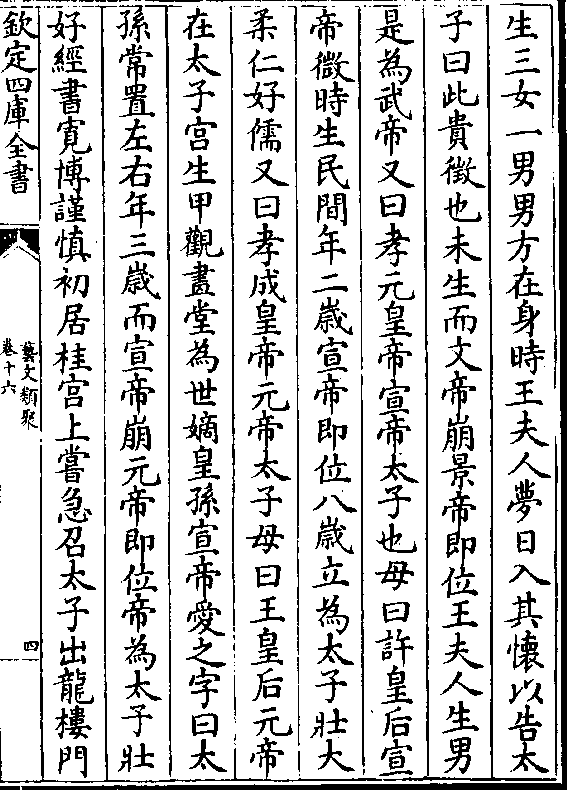 生三女一男男方在身時王夫人夢日入其懷以告太
子曰此貴徴也未生而文帝崩景帝即位王夫人生男
是為武帝又曰孝元皇帝宣帝太子也母曰許皇后宣
帝微時生民間年二歲宣帝即位八歲立為太子壯大
柔仁好儒又曰孝成皇帝元帝太子母曰王皇后元帝
在太子宫生甲觀畫堂為世嫡皇孫宣帝愛之字曰太
孫常置左右年三歲而宣帝崩元帝即位帝為太子壯
好經書寛博謹慎初居桂宫上嘗急召太子出龍樓門
欽定四庫全書
藝文類聚
卷十六
四